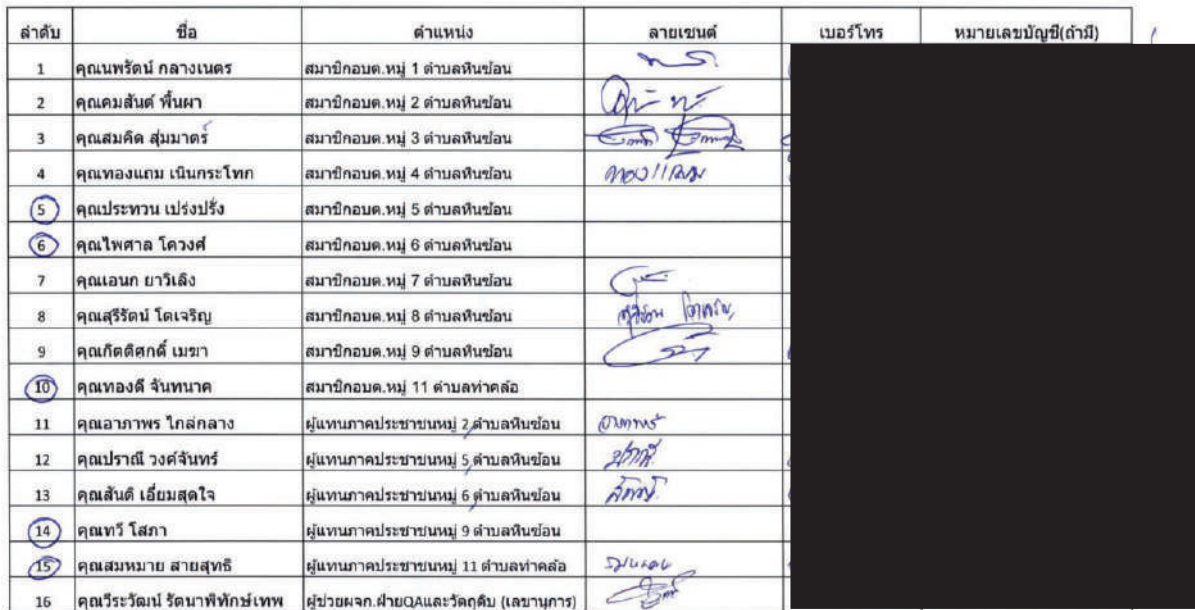 ลำดับ ชื่อ ตำแหน่ง ลายเซนต์ เบอร์โทร หมายเลขบัญชี(ถ้ามี)
1 คุณนพรัตน์ กลางเนตร สมาชิกอบต.หมู่ 1 ตำบลหินซ้อน
2 คุณคมสันต์ พื้นผา สมาชิกอบต.หมู่ 2 ตำบลหินซ้อน
3 คุณสมคิด สุ่มมาตร์ สมาชิกอบต.หมู่ 3 ตำบลหินซ้อน
4 คุณทองแถม เนินกระโทก สมาชิกอบต.หมู่ 4 ตำบลหินซ้อน ทองแถม
5 คุณประทวน เปร่งปรั่ง สมาชิกอบต.หมู่ 5 ตำบลหินซ้อน
6 คุณไพศาล โควงศ์ สมาชิกอบต.หมู่ 6 ตำบลหินซ้อน
7 คุณเอนก ยาวิเลิง สมาชิกอบต.หมู่ 7 ตำบลหินซ้อน
8 คุณสุรีรัตน์ โตเจริญ สมาชิกอบต.หมู่ 8 ตำบลหินซ้อน
9 คุณกิตติศักดิ์ เมฆา สมาชิกอบต.หมู่ 9 ตำบลหินซ้อน
10 คุณทองดี จันทนาค สมาชิกอบต.หมู่ 11 ตำบลท่าคล้อ
11 คุณอาภาพร ไกลกลาง ผู้แทนภาคประชาชนหมู่ 2 ตำบลหินซ้อน
12 คุณปราณี วงค์จันทร์ ผู้แทนภาคประชาชนหมู่ 5 ตำบลหินซ้อน ปราณี
13 คุณสันติ เอี่ยมสุดใจ ผู้แทนภาคประชาชนหมู่ 6 ตำบลหินซ้อน
14 คุณทวี โสภา ผู้แทนภาคประชาชนหมู่ 9 ตำบลหินซ้อน
15 คุณสมหมาย สายสุทธิ ผู้แทนภาคประชาชนหมู่ 11 ตำบลท่าคล้อ
16 คุณวีระวัฒน์ รัตนาพิทักษ์เทพ ผู้ช่วยผจก.ฝ่ายQAและวัตถุดิบ (เลขานุการ)